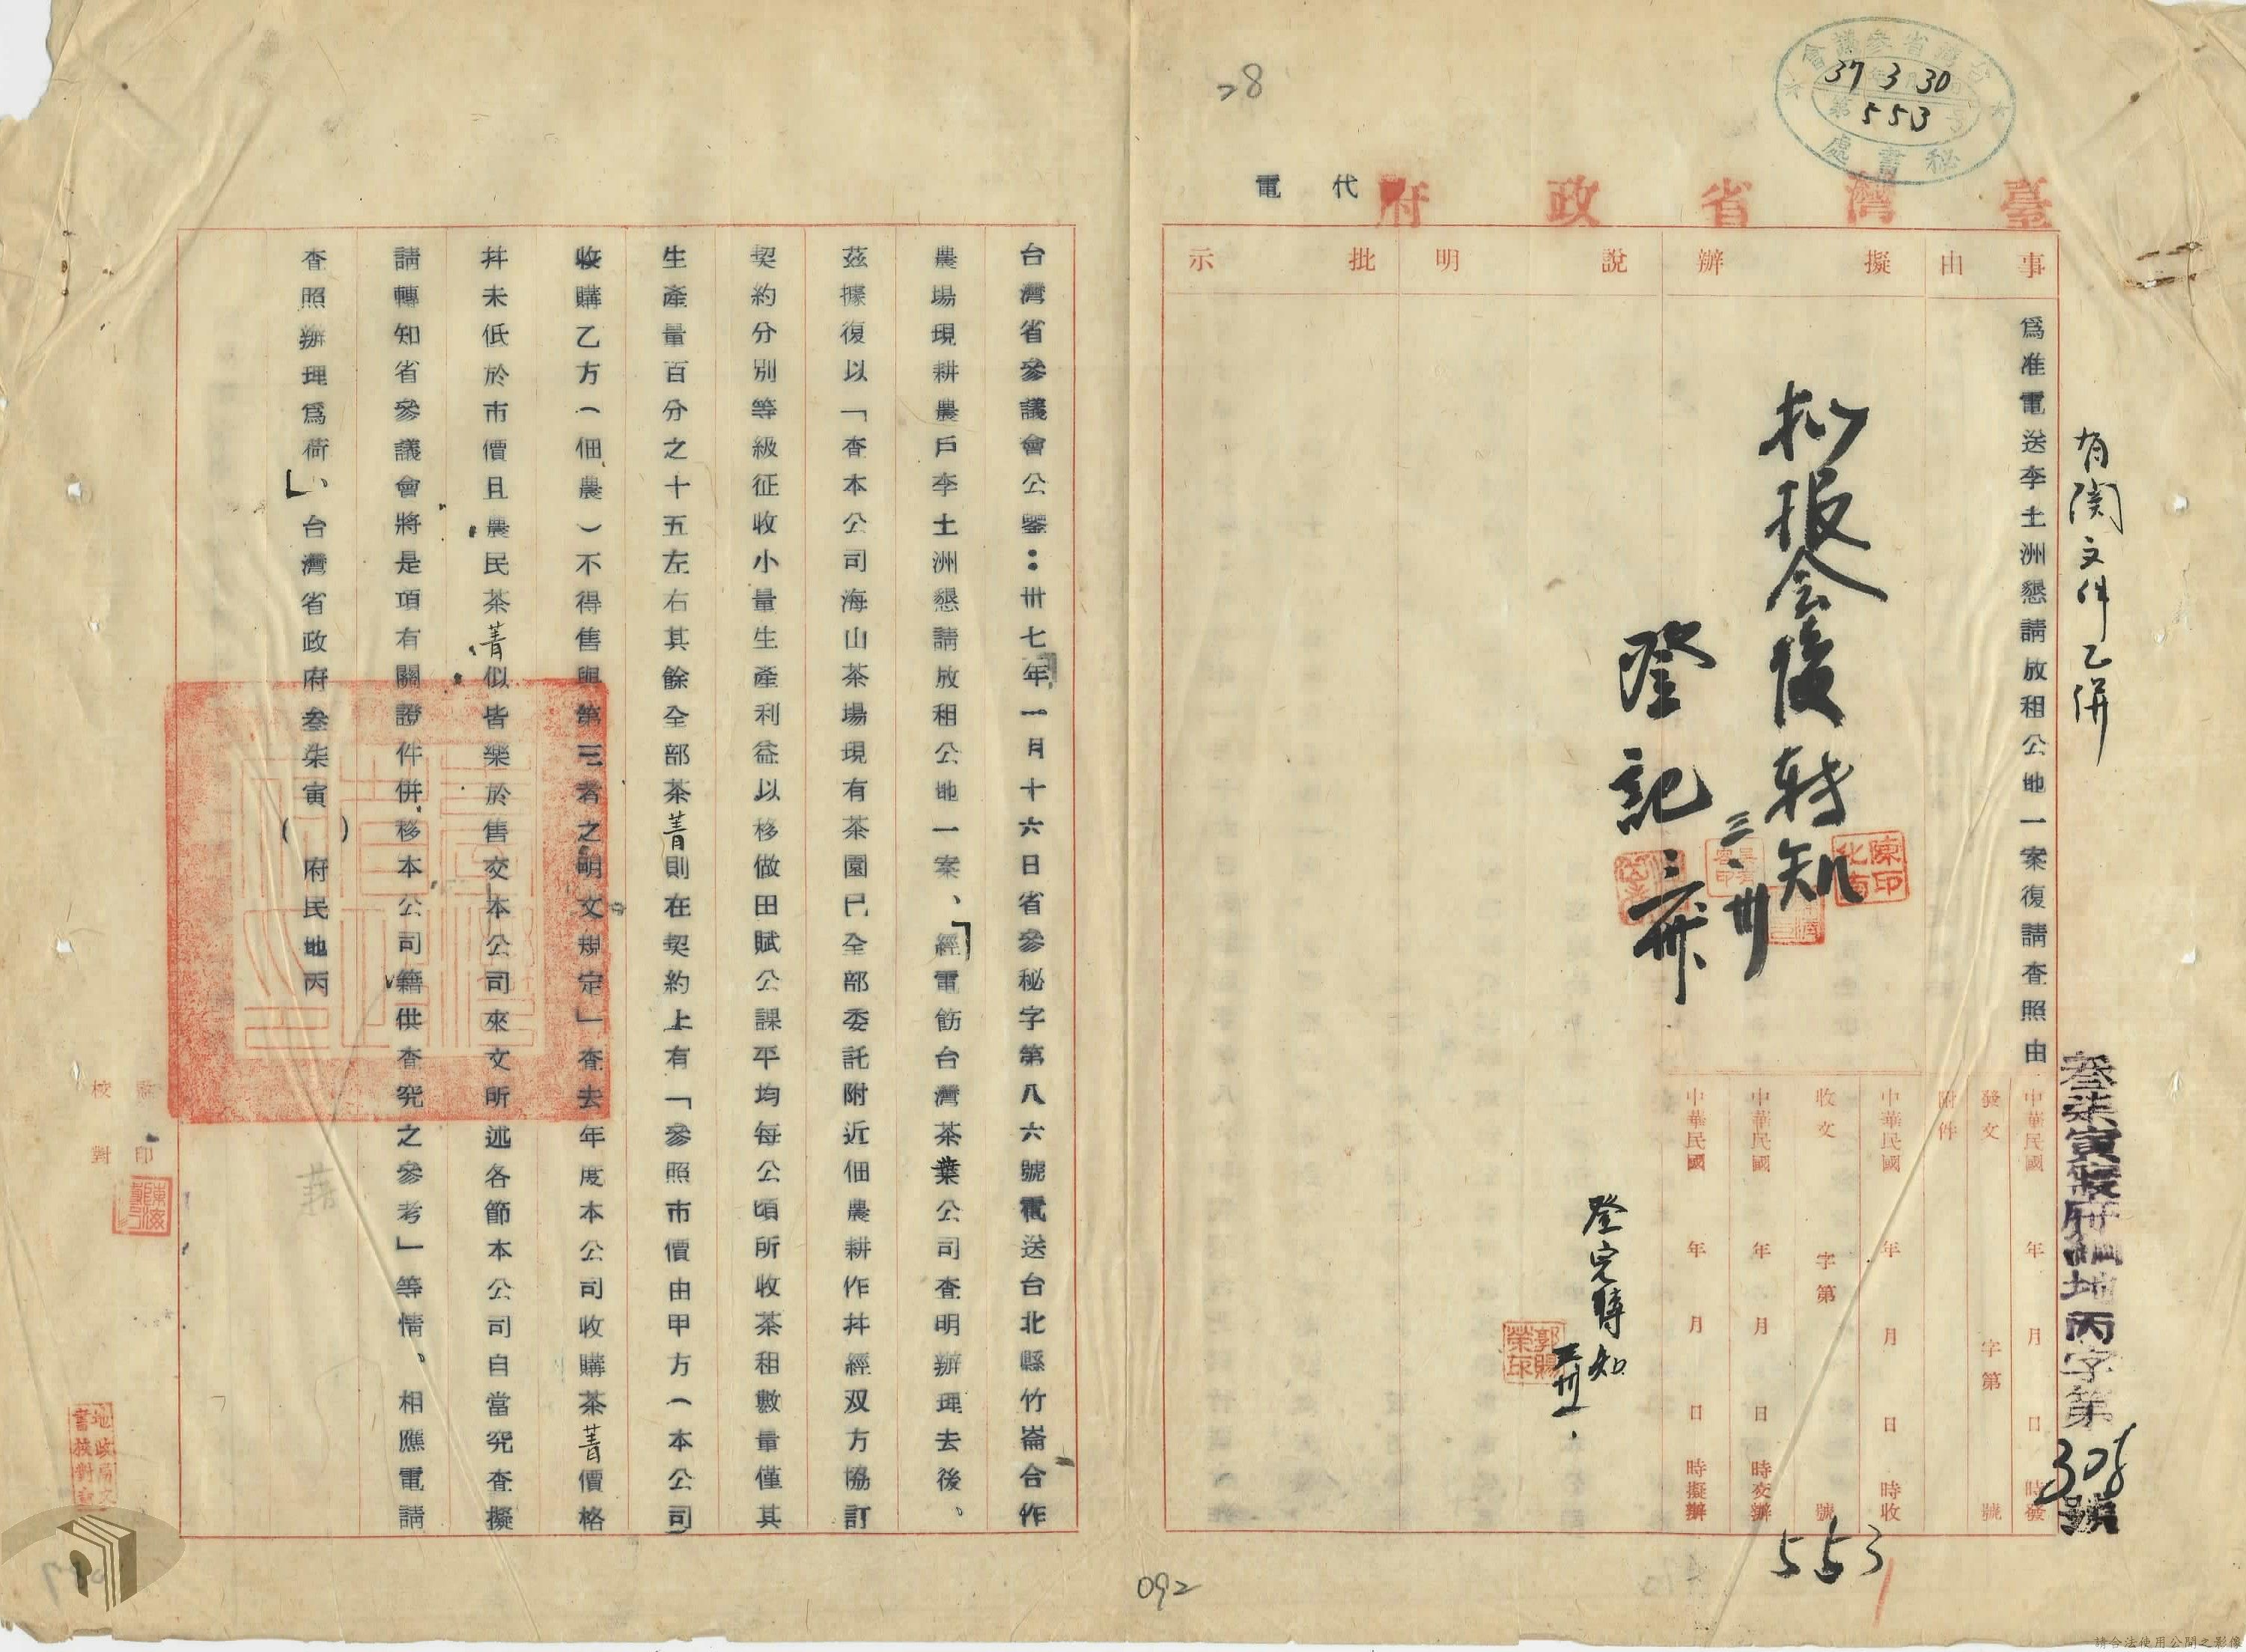 台灣省參議會
37 3 30
第553号
秘書處
28
臺灣省政府
代電
事由
擬辦
說明
批示
為准電送李土洲懇請放租公地一案復請查照由
有関文件乙併
叁柒寅 府 地丙字第
號
扣报会後转知
三、卅
登記
登完轉知
陳印
郭賜榮印
中華民國 年 月 日 時發
發文 字第 號
附件
中華民國 年 月 日 時收
收文 字第 號
中華民國 年 月 日 時交辦
中華民國 年 月 日 時擬辦
553
台灣省參議會公鑒：卅七年一月十六日省參秘字第八六號電送台北縣竹崙合作
農場現耕農戶李土洲懇請放租公地一案、「經電飭台灣茶葉公司查明辦理去後、
茲據復以「查本公司海山茶場現有茶園已全部委託附近佃農耕作幷經双方協訂
契約分別等級征收小量生產利益以移做田賦公課平均每公頃所收茶租數量僅其
生產量百分之十五左右其餘全部茶菁則在契約上有「參照市價由甲方（本公司
收購乙方（佃農）不得售與第三者之明文規定」查去年度本公司收購茶菁價格
幷未低於市價且農民茶菁似皆樂於售交本公司來文所述各節本公司自當究查擬
請轉知省參議會將是項有關證件併移本公司籍供查究之參考」等情。相應電請
查照辦理為荷」、台灣省政府叁柒寅（　）府民地丙
監印
校對
092
請合法使用公開之影像